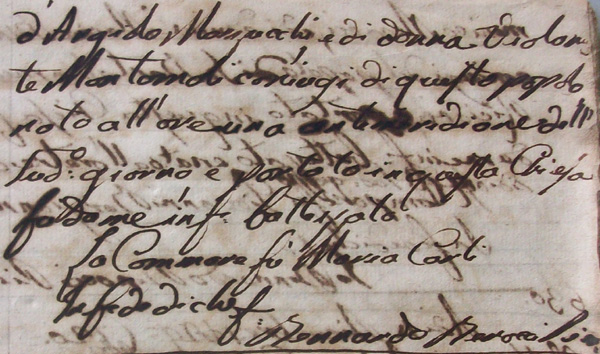 d'Angiolo Marzucchi e di donna Violan
te Mantovadi coniugi di questo popolo
nato all'ore una antimeridiane dell
sud.º giorno e portato in questa Chiesa
fu da me inf. battezzato
La Commare fù Maria Carli
In fede di che